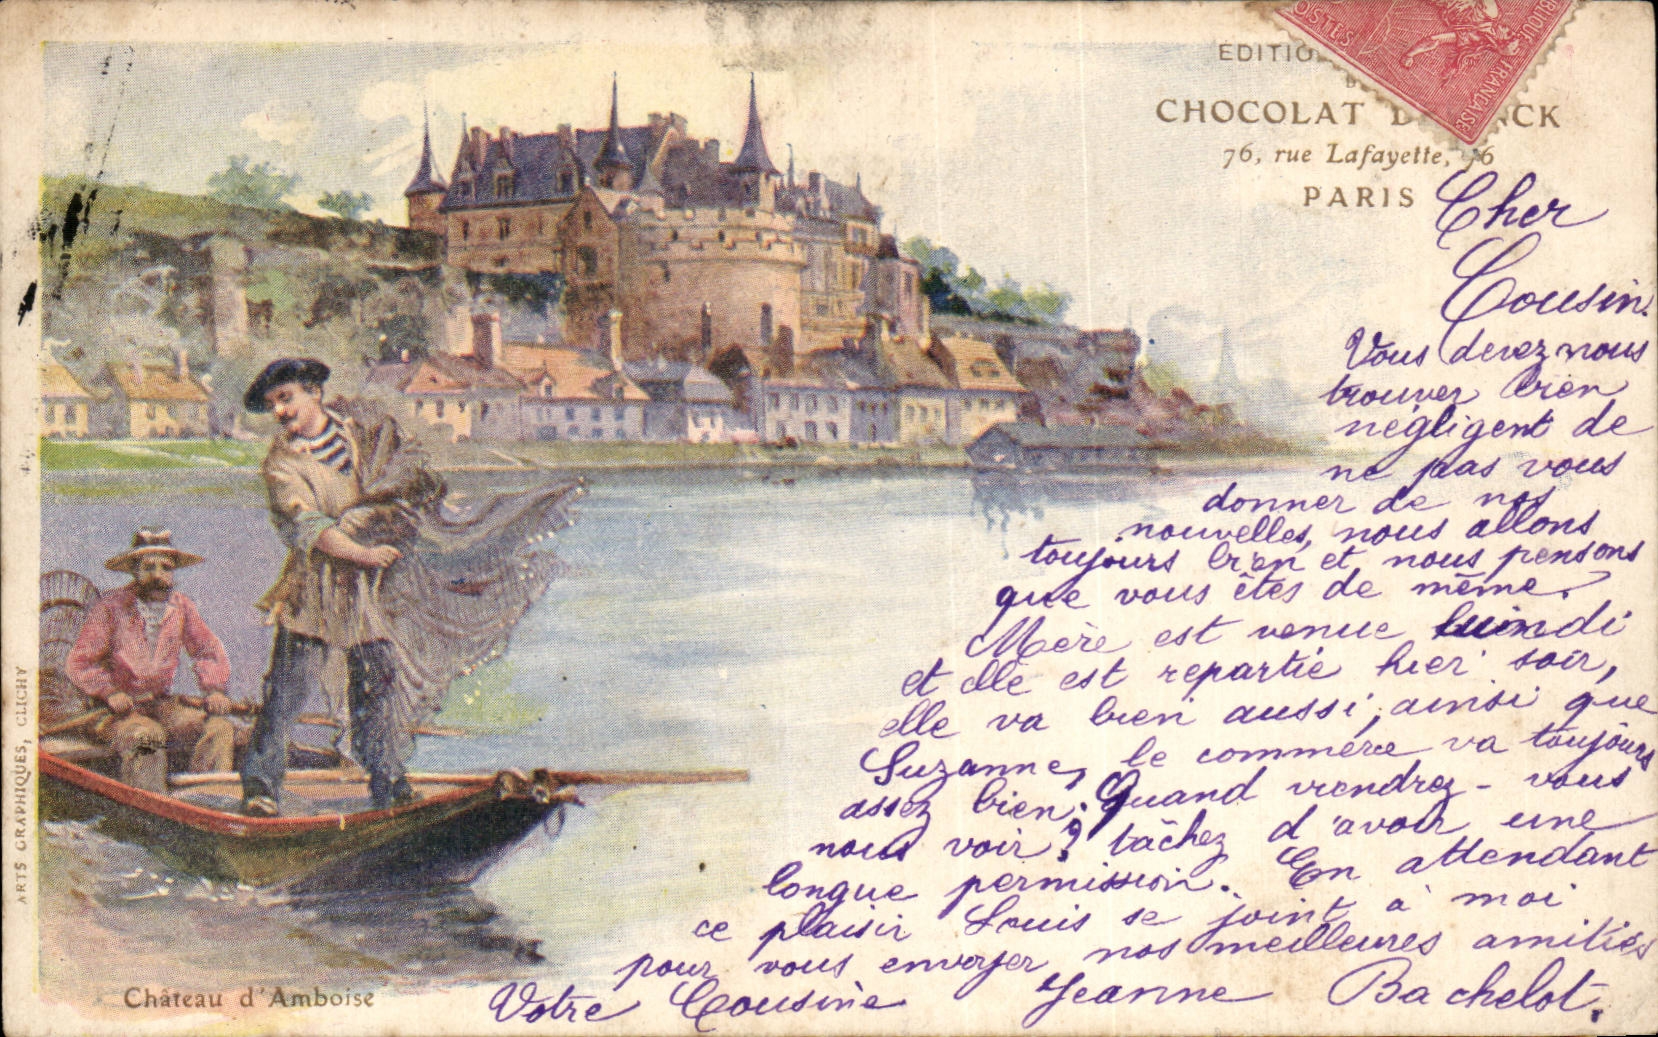 POSTES
RÉPUBLIQUE FRANÇAISE
EDITIO
CHOCOLAT D CK
76, rue Lafayette, 76
PARIS
Cher
Cousin.
Vous devez nous
trouver bien
négligent de
ne pas vous
donner de nos
nouvelles, nous allons
toujours bien et nous pensons
que vous êtes de même.
Mère est venue lundi
et elle est repartie hier soir,
elle va bien aussi, ainsi que
Suzanne, le commerce va toujours
assez bien. Quand viendrez-vous
nous voir? tâchez d'avoir une
longue permission. En attendant
ce plaisir Louis se joint à moi
pour vous envoyer nos meilleures amitiés
Votre Cousine Jeanne Bachelot.
Château d'Amboise
ARTS GRAPHIQUES, CLICHY